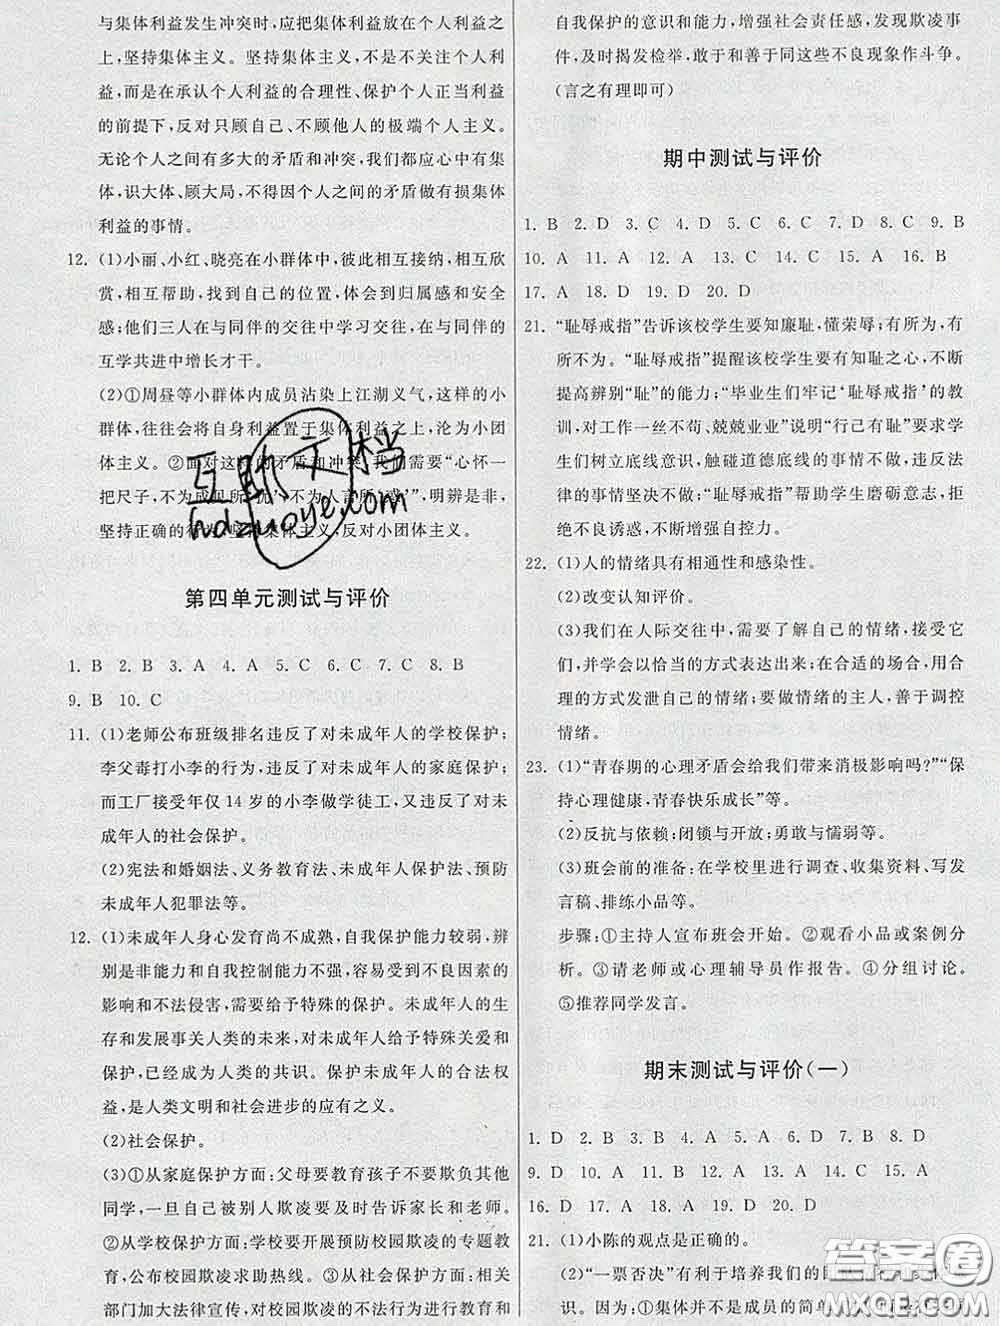 与集体利益发生冲突时,应把集体利益放在个人利益之
上,坚持集体主义。坚持集体主义,不是不关注个人利
益,而是在承认个人利益的合理性、保护个人正当利益
的前提下,反对只顾自己、不顾他人的极端个人主义。
无论个人之间有多大的矛盾和冲突,我们都应心中有集
体,识大体、顾大局,不得因个人之间的矛盾做有损集体
利益的事情。
12. (1)小丽、小红、晓亮在小群体中,彼此相互接纳,相互欣
赏,相互帮助,找到自己的位置,体会到归属感和安全
感;他们三人在与同伴的交往中学习交往,在与同伴的
互学共进中增长才干。
(2)①周昼等小群体内成员沾染上江湖义气,这样的小
群体,往往会将自身利益置于集体利益之上,沦为小团
体主义。②面对这样的矛盾和冲突,我们需要“心怀一
把尺子,不为成见所‘扰’,不为人言所‘惑’”,明辨是非,
坚持正确的行为,坚持集体主义,反对小团体主义。
第四单元测试与评价
1. B 2. B 3. A 4. A 5. C 6. C 7. C 8. B
9. B 10. C
11. (1)老师公布班级排名违反了对未成年人的学校保护;
李父毒打小李的行为,违反了对未成年人的家庭保护;
而工厂接受年仅 14 岁的小李做学徒工,又违反了对未
成年人的社会保护。
(2)宪法和婚姻法、义务教育法、未成年人保护法、预防
未成年人犯罪法等。
12. (1)未成年人身心发育尚不成熟,自我保护能力较弱,辨
别是非能力和自我控制能力不强,容易受到不良因素的
影响和不法侵害,需要给予特殊的保护。未成年人的生
存和发展事关人类的未来,对未成年人给予特殊关爱和
保护,已经成为人类的共识。保护未成年人的合法权
益,是人类文明和社会进步的应有之义。
(2)社会保护。
(3)①从家庭保护方面:父母要教育孩子不要欺负其他
同学,当自己的孩子被别人欺凌要及时告诉家长和老师。
②从学校保护方面:学校要开展预防校园欺凌的专题教
育,公布校园欺凌求助热线。③从社会保护方面:相关
部门加大法律宣传,对校园欺凌的不法行为进行教育和
自我保护的意识和能力,增强社会责任感,发现欺凌事
件,及时揭发检举,敢于和善于同这些不良现象作斗争。
(言之有理即可)
期中测试与评价
1. B 2. D 3. C 4. D 5. C 6. C 7. D 8. C 9. B
10. A 11. A 12. C 13. C 14. A 15. A 16. B
17. A 18. D 19. D 20. D
21. “耻辱戒指”告诉该校学生要知廉耻,懂荣辱;有所为,有
所不为。“耻辱戒指”提醒该校学生要有知耻之心,不断
提高辨别“耻”的能力;“毕业生们牢记‘耻辱戒指’的教
训,对工作一丝不苟、兢兢业业”说明“行己有耻”要求学
生们树立底线意识,触碰道德底线的事情不做,违反法
律的事情坚决不做;“耻辱戒指”帮助学生磨砺意志,拒
绝不良诱惑,不断增强自控力。
22. (1)人的情绪具有相通性和感染性。
(2)改变认知评价。
(3)我们在人际交往中,需要了解自己的情绪,接受它
们,并学会以恰当的方式表达出来;在合适的场合,用合
理的方式发泄自己的情绪;要做情绪的主人,善于调控
情绪。
23. (1)“青春期的心理矛盾会给我们带来消极影响吗?”“保
持心理健康,青春快乐成长”等。
(2)反抗与依赖;闭锁与开放;勇敢与懦弱等。
(3)班会前的准备:在学校里进行调查、收集资料、写发
言稿、排练小品等。
步骤:①主持人宣布班会开始。②观看小品或案例分
析。③请老师或心理辅导员作报告。④分组讨论。
⑤推荐同学发言。
期末测试与评价(一)
1. D 2. B 3. B 4. A 5. A 6. D 7. D 8. D
9. D 10. A 11. B 12. A 13. A 14. C 15. A
16. D 17. A 18. A 19. D 20. D
21. (1)小陈的观点是正确的。
(2)“一票否决”有利于培养我们的
识。因为:①集体并不是成员的简单
互助文档
hdzuoye.com
答案圈